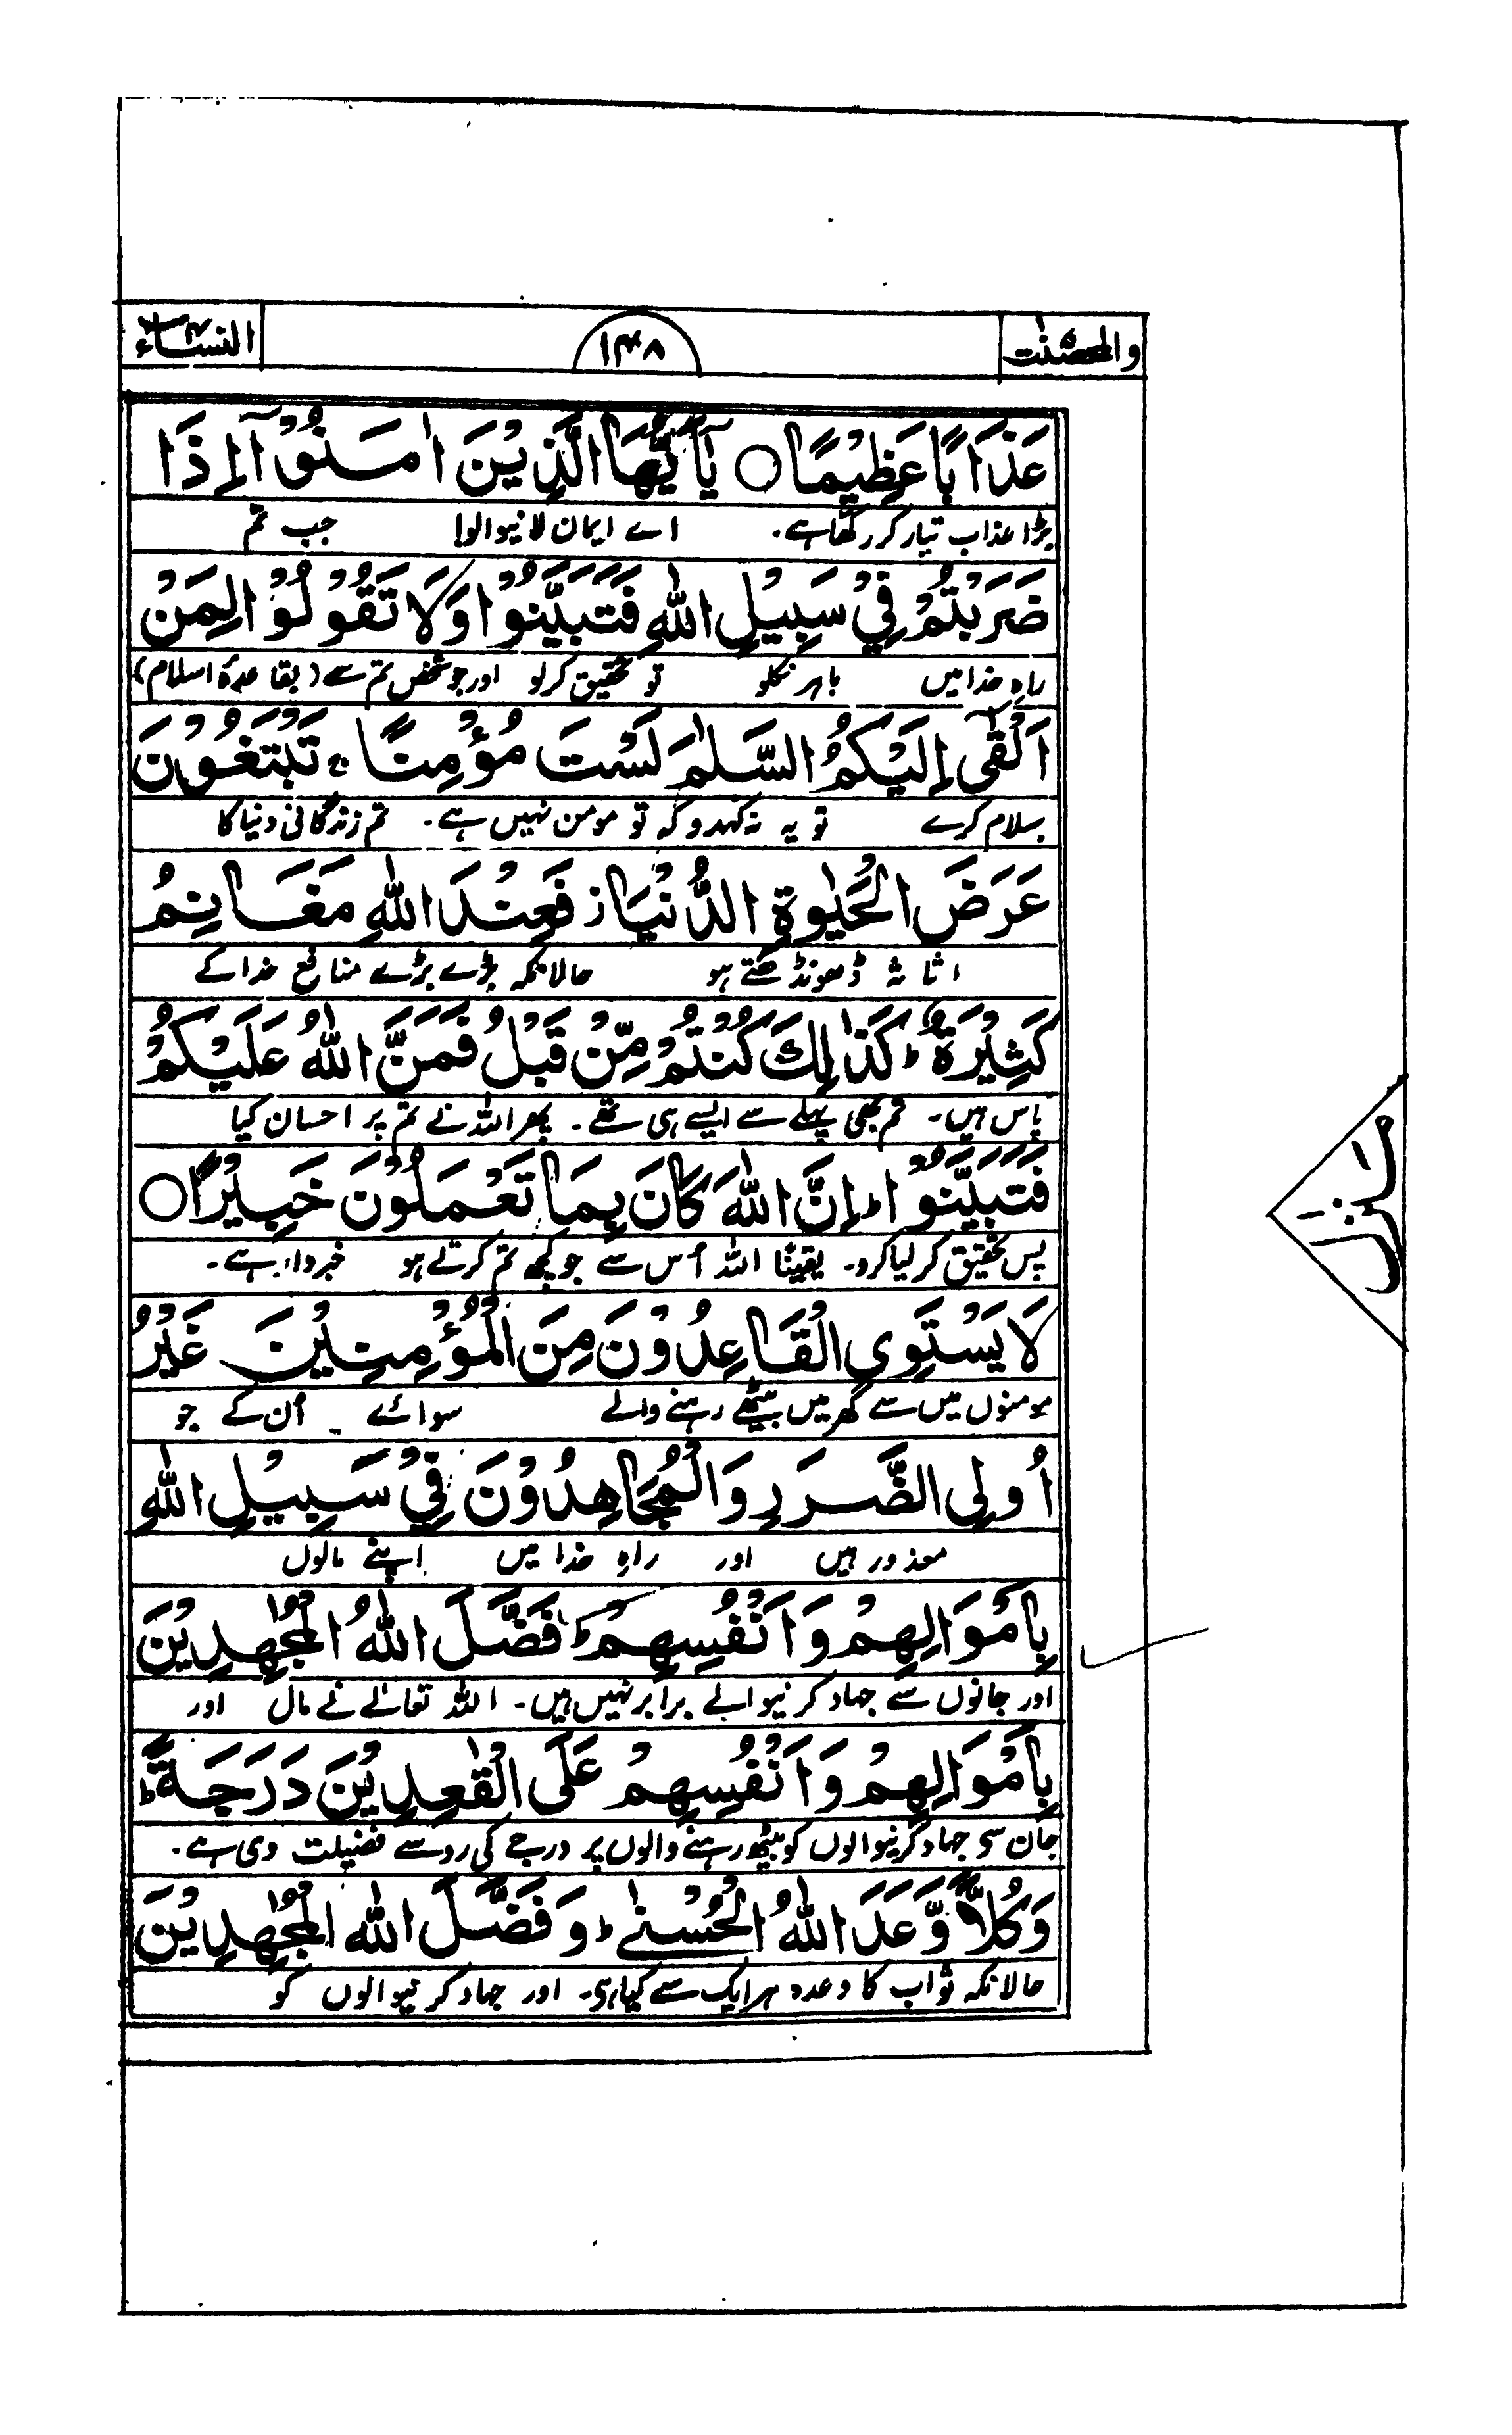 والمحصنٰت ۵
۱۴۸
النسآء ۴
عَذَابًا عَظِيْمًا ○ يٰۤاَيُّهَا الَّذِيْنَ اٰمَنُوْۤا اِذَا
بڑا عذاب تیار کر رکھا ہے۔ اے ایمان لانیوالو! جب تم
ضَرَبْتُمْ فِيْ سَبِيْلِ اللّٰهِ فَتَبَيَّنُوْا وَلَا تَقُوْلُوْا لِمَنْ
راہِ خدا میں باہر نکلو تو تحقیق کرلو اور جو شخص تم سے (بقاعدۂ اسلام)
اَلْقٰۤى اِلَيْكُمُ السَّلٰمَ لَسْتَ مُؤْمِنًا ۚ تَبْتَغُوْنَ
سلام کرے تو یہ نہ کہدو کہ تو مومن نہیں ہے۔ تم زندگانی دنیا کا
عَرَضَ الْحَيٰوةِ الدُّنْيَا ز فَعِنْدَ اللّٰهِ مَغَانِمُ
اثاثہ ڈھونڈھتے ہو حالانکہ بڑے بڑے منافع خدا کے
كَثِيْرَةٌ ؕ كَذٰلِكَ كُنْتُمْ مِّنْ قَبْلُ فَمَنَّ اللّٰهُ عَلَيْكُمْ
پاس ہیں۔ تم بھی پہلے سے ایسے ہی تھے۔ پھر اللہ نے تم پر احسان کیا
فَتَبَيَّنُوْا ؕ اِنَّ اللّٰهَ كَانَ بِمَا تَعْمَلُوْنَ خَبِيْرًا ○
پس تحقیق کر لیا کرو۔ یقینًا اللہ اُس سے جو کچھ تم کرتے ہو خبردار ہے۔
لَا يَسْتَوِى الْقَاعِدُوْنَ مِنَ الْمُؤْمِنِيْنَ غَيْرُ
مومنوں میں سے گھر میں بیٹھے رہنے والے سوائے ۔ اُن کے جو
اُولِى الضَّرَرِ وَالْمُجَاهِدُوْنَ فِيْ سَبِيْلِ اللّٰهِ
معذور ہیں اور راہِ خدا میں اپنے مالوں
بِاَمْوَالِهِمْ وَاَنْفُسِهِمْ ؕ فَضَّلَ اللّٰهُ الْمُجٰهِدِيْنَ
اور جانوں سے جہاد کرنیوالے برابر نہیں ہیں۔ اللہ تعالےٰ نے مال اور
بِاَمْوَالِهِمْ وَاَنْفُسِهِمْ عَلَى الْقٰعِدِيْنَ دَرَجَةً ؕ
جان سی جہاد کرنیوالوں کو بیٹھ رہنے والوں پر درجے کی رو سے فضیلت دی ہے۔
وَكُلًّا وَّعَدَ اللّٰهُ الْحُسْنٰے ؕ وَفَضَّلَ اللّٰهُ الْمُجٰهِدِيْنَ
حالانکہ ثواب کا وعدہ ہر ایک سے کیا ہی۔ اور جہاد کرنیوالوں کو
منزل ۱